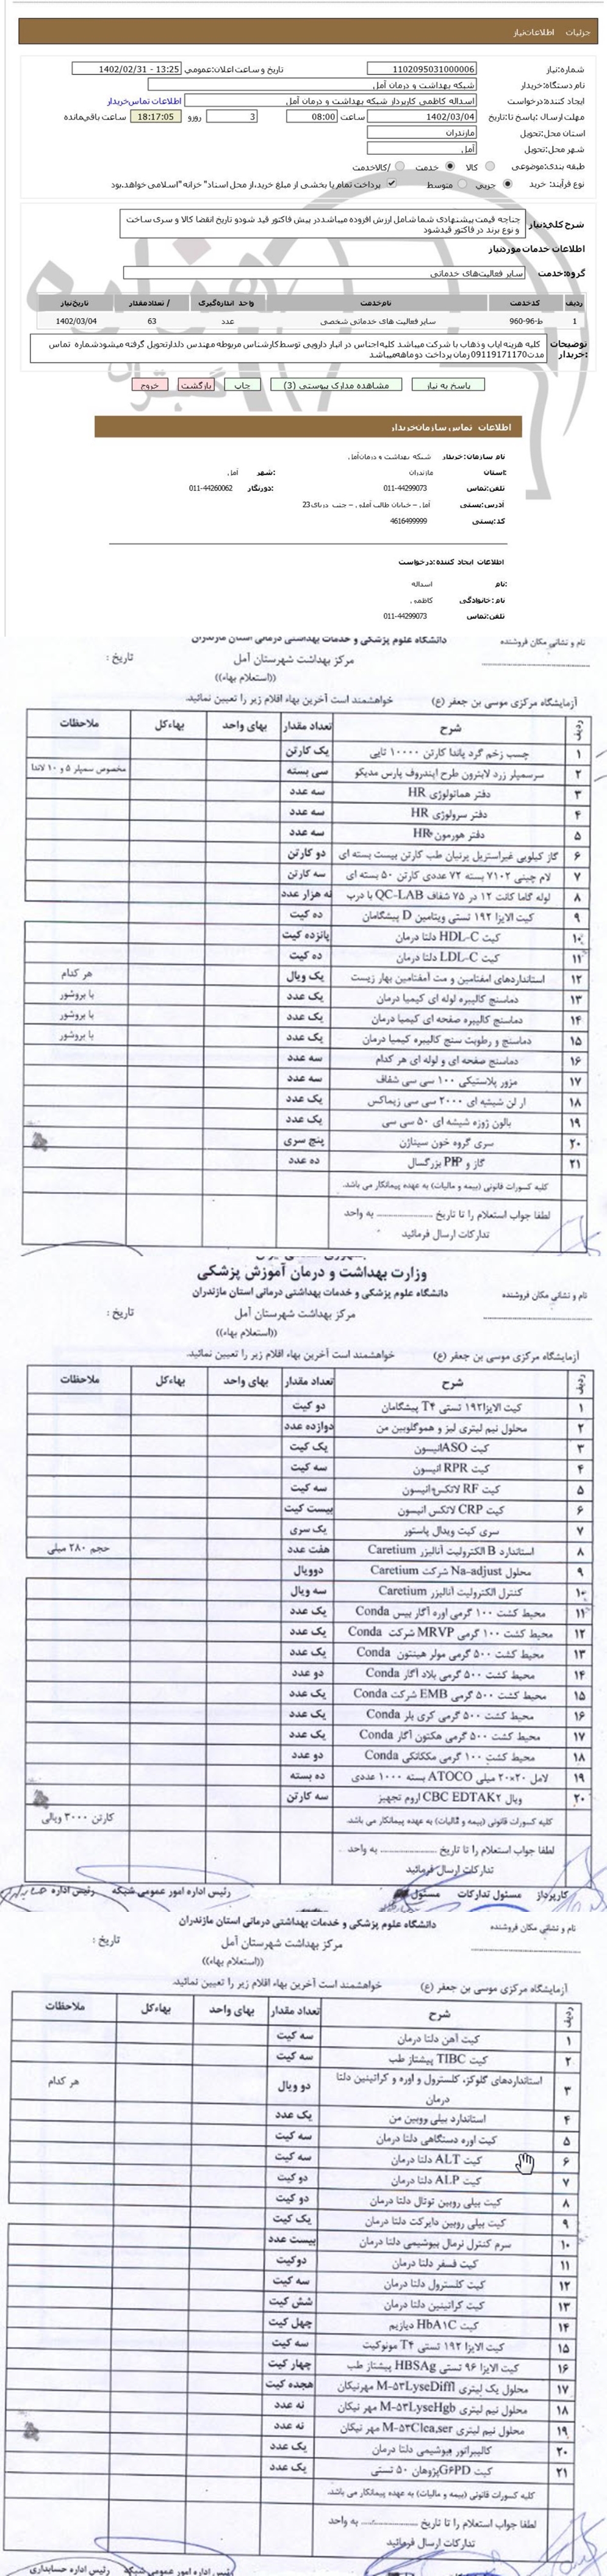 جزئیات اطلاعات نیاز
شماره نیاز: 1102095031000006 تاریخ و ساعت اعلان عمومی: 1402/02/31 - 13:25
نام دستگاه خریدار: شبکه بهداشت و درمان آمل
ایجاد کننده درخواست: اسداله کاظمی کارپرداز شبکه بهداشت و درمان آمل اطلاعات تماس خریدار
مهلت ارسال پاسخ تا: تاریخ 1402/03/04 ساعت 08:00 3 روز و 18:17:05 ساعت باقی مانده
استان محل تحویل: مازندران
شهر محل تحویل: آمل
طبقه بندی موضوعی: کالا خدمت کالا/خدمت
نوع فرآیند خرید: جزیی متوسط پرداخت تمام یا بخشی از مبلغ خرید،از محل اسناد" خزانه "اسلامی خواهد.بود
شرح کلی نیاز: چناچه قیمت پیشنهادی شما شامل ارزش افزوده میباشد در پیش فاکتور قید شود و تاریخ انقضا کالا و سری ساخت و نوع برند در فاکتور قید شود
اطلاعات خدمات مورد نیاز
گروه خدمت: سایر فعالیت‌های خدماتی
ردیف کد خدمت نام خدمت واحد اندازه گیری تعداد / مقدار تاریخ نیاز
1 ط-96-960 سایر فعالیت های خدماتی شخصی عدد 63 1402/03/04
توضیحات خریدار: کلیه هزینه ایاب و ذهاب با شرکت میباشد کلیه اجناس در انبار دارویی توسط کارشناس مربوطه مهندس دلدار تحویل گرفته میشود شماره تماس 09119171170 مدت زمان پرداخت دو ماهه میباشد
پاسخ به نیاز مشاهده مدارک پیوستی (3) چاپ بازگشت خروج
اطلاعات تماس سازمان خریدار
نام سازمان خریدار: شبکه بهداشت و درمان آمل
استان: مازندران شهر: آمل
تلفن تماس: 011-44299073 دورنگار: 011-44260062
آدرس پستی: آمل – خیابان طالب آملی – جنب دریای 23
کد پستی: 4616499999
اطلاعات ایجاد کننده درخواست:
نام: اسداله
نام خانوادگی: کاظمی
تلفن تماس: 011-44299073
دانشگاه علوم پزشکی و خدمات بهداشتی درمانی استان مازندران
نام و نشانی مکان فروشنده
مرکز بهداشت شهرستان آمل
تاریخ :
((استعلام بهاء))
آزمایشگاه مرکزی موسی بن جعفر (ع) خواهشمند است آخرین بهاء اقلام زیر را تعیین نمائید.
ردیف شرح تعداد مقدار بهای واحد بهاءکل ملاحظات
۱ چسب زخم گرد پاندا کارتن ۱۰۰۰۰ تایی یک کارتن
۲ سرسمپلر زرد لابترون طرح ایندروف پارس مدیکو سی بسته مخصوص سمپلر ۵ و ۱۰ لاندا
۳ دفتر هماتولوژی HR سه عدد
۴ دفتر سرولوژی HR سه عدد
۵ دفتر هورمون HR سه عدد
۶ گاز کیلویی غیراستریل پرنیان طب کارتن بیست بسته ای دو کارتن
۷ لام چینی ۷۱۰۲ بسته ۷۲ عددی کارتن ۵۰ بسته ای سه کارتن
۸ لوله گاما کانت ۱۲ در ۷۵ شفاف QC-LAB با درب نه هزار عدد
۹ کیت الایزا ۱۹۲ تستی ویتامین D پیشگامان ده کیت
۱۰ کیت HDL-C دلتا درمان پانزده کیت
۱۱ کیت LDL-C دلتا درمان ده کیت
۱۲ استانداردهای امفتامین و مت آمفتامین بهار زیست یک ویال هر کدام
۱۳ دماسنج کالیبره لوله ای کیمیا درمان یک عدد با بروشور
۱۴ دماسنج کالیبره صفحه ای کیمیا درمان یک عدد با بروشور
۱۵ دماسنج و رطوبت سنج کالیبره کیمیا درمان یک عدد با بروشور
۱۶ دماسنج صفحه ای و لوله ای هر کدام سه عدد
۱۷ مزور پلاستیکی ۱۰۰ سی سی شفاف سه عدد
۱۸ ار لن شیشه ای ۲۰۰۰ سی سی زیماکس یک عدد
۱۹ بالون ژوژه شیشه ای ۵۰ سی سی یک عدد
۲۰ سری گروه خون سیناژن پنج سری
۲۱ گاز و PIP بزرگسال ده عدد
کلیه کسورات قانونی (بیمه و مالیات) به عهده پیمانکار می باشد.
لطفا جواب استعلام را تا تاریخ ............ به واحد
تدارکات ارسال فرمائید
وزارت بهداشت و درمان آموزش پزشکی
دانشگاه علوم پزشکی و خدمات بهداشتی درمانی استان مازندران
نام و نشانی مکان فروشنده
مرکز بهداشت شهرستان آمل
تاریخ :
((استعلام بهاء))
آزمایشگاه مرکزی موسی بن جعفر (ع) خواهشمند است آخرین بهاء اقلام زیر را تعیین نمائید.
ردیف شرح تعداد مقدار بهای واحد بهاءکل ملاحظات
۱ کیت الایزا۱۹۲ تستی T۴ پیشگامان دو کیت
۲ محلول نیم لیتری لیز و هموگلوبین من دوازده عدد
۳ کیت ASOانیسون یک کیت
۴ کیت RPR انیسون سه کیت
۵ کیت RF لاتکس انیسون سه کیت
۶ کیت CRP لاتکس انیسون بیست کیت
۷ سری کیت ویدال پاستور یک سری
۸ استاندارد B الکترولیت آنالیزر Caretium هفت عدد حجم ۲۸۰ میلی
۹ محلول Na-adjust شرکت Caretium دوویال
۱۰ کنترل الکترولیت آنالیزر Caretium سه ویال
۱۱ محیط کشت ۱۰۰ گرمی اوره آگار بیس Conda یک عدد
۱۲ محیط کشت ۱۰۰ گرمی MRVP شرکت Conda یک عدد
۱۳ محیط کشت ۵۰۰ گرمی مولر هینتون Conda یک عدد
۱۴ محیط کشت ۵۰۰ گرمی بلاد آگار Conda دو عدد
۱۵ محیط کشت ۵۰۰ گرمی EMB شرکت Conda یک عدد
۱۶ محیط کشت ۵۰۰ گرمی کری بلر Conda یک عدد
۱۷ محیط کشت ۵۰۰ گرمی هکتون آگار Conda یک عدد
۱۸ محیط کشت ۱۰۰ گرمی مککانکی Conda دو عدد
۱۹ لامل ۲۰×۲۰ میلی ATOCO بسته ۱۰۰۰ عددی ده بسته
۲۰ ویال CBC EDTAK۲ اروم تجهیز سه کارتن
کلیه کسورات قانونی (بیمه و مالیات) به عهده پیمانکار می باشد. کارتن ۳۰۰۰ ویالی
لطفا جواب استعلام را تا تاریخ ............ به واحد
تدارکات ارسال فرمائید
کارپرداز مسئول تدارکات مسئول رئیس اداره امور عمومی شبکه رئیس اداره
دانشگاه علوم پزشکی و خدمات بهداشتی درمانی استان مازندران
نام و نشانی مکان فروشنده
مرکز بهداشت شهرستان آمل
تاریخ :
((استعلام بهاء))
آزمایشگاه مرکزی موسی بن جعفر (ع) خواهشمند است آخرین بهاء اقلام زیر را تعیین نمائید.
ردیف شرح تعداد مقدار بهای واحد بهاءکل ملاحظات
۱ کیت آهن دلتا درمان سه کیت
۲ کیت TIBC پیشتاز طب سه کیت
۳ استانداردهای گلوکز، کلسترول و اوره و کراتینین دلتا درمان دو ویال هر کدام
۴ استاندارد بیلی روبین من یک عدد
۵ کیت اوره دستگاهی دلتا درمان سه کیت
۶ کیت ALT دلتا درمان سه کیت
۷ کیت ALP دلتا درمان دو کیت
۸ کیت بیلی روبین توتال دلتا درمان دو کیت
۹ کیت بیلی روبین دایرکت دلتا درمان یک کیت
۱۰ سرم کنترل نرمال بیوشیمی دلتا درمان بیست عدد
۱۱ کیت فسفر دلتا درمان دوکیت
۱۲ کیت کلسترول دلتا درمان سه کیت
۱۳ کیت کراتینین دلتا درمان شش کیت
۱۴ کیت HbA۱C دیازیم چهل کیت
۱۵ کیت الایزا ۱۹۲ تستی T۴ مونوکیت سه کیت
۱۶ کیت الایزا ۹۶ تستی HBSAg پیشتاز طب چهار کیت
۱۷ محلول یک لیتری M-۵۳LyseDiffl مهرنیکان هجده کیت
۱۸ محلول نیم لیتری M-۵۳LyseHgb مهر نیکان نه عدد
۱۹ محلول نیم لیتری M-۵۳Clea,ser مهر نیکان نه عدد
۲۰ کالیبراتور بیوشیمی دلتا درمان یک عدد
۲۱ کیت G۶PDپژوهان ۵۰ تستی یک عدد
کلیه کسورات قانونی (بیمه و مالیات) به عهده پیمانکار می باشد.
لطفا جواب استعلام را تا تاریخ ............ به واحد
تدارکات ارسال فرمائید
رئیس اداره امور عمومی شبکه رئیس اداره حسابداری